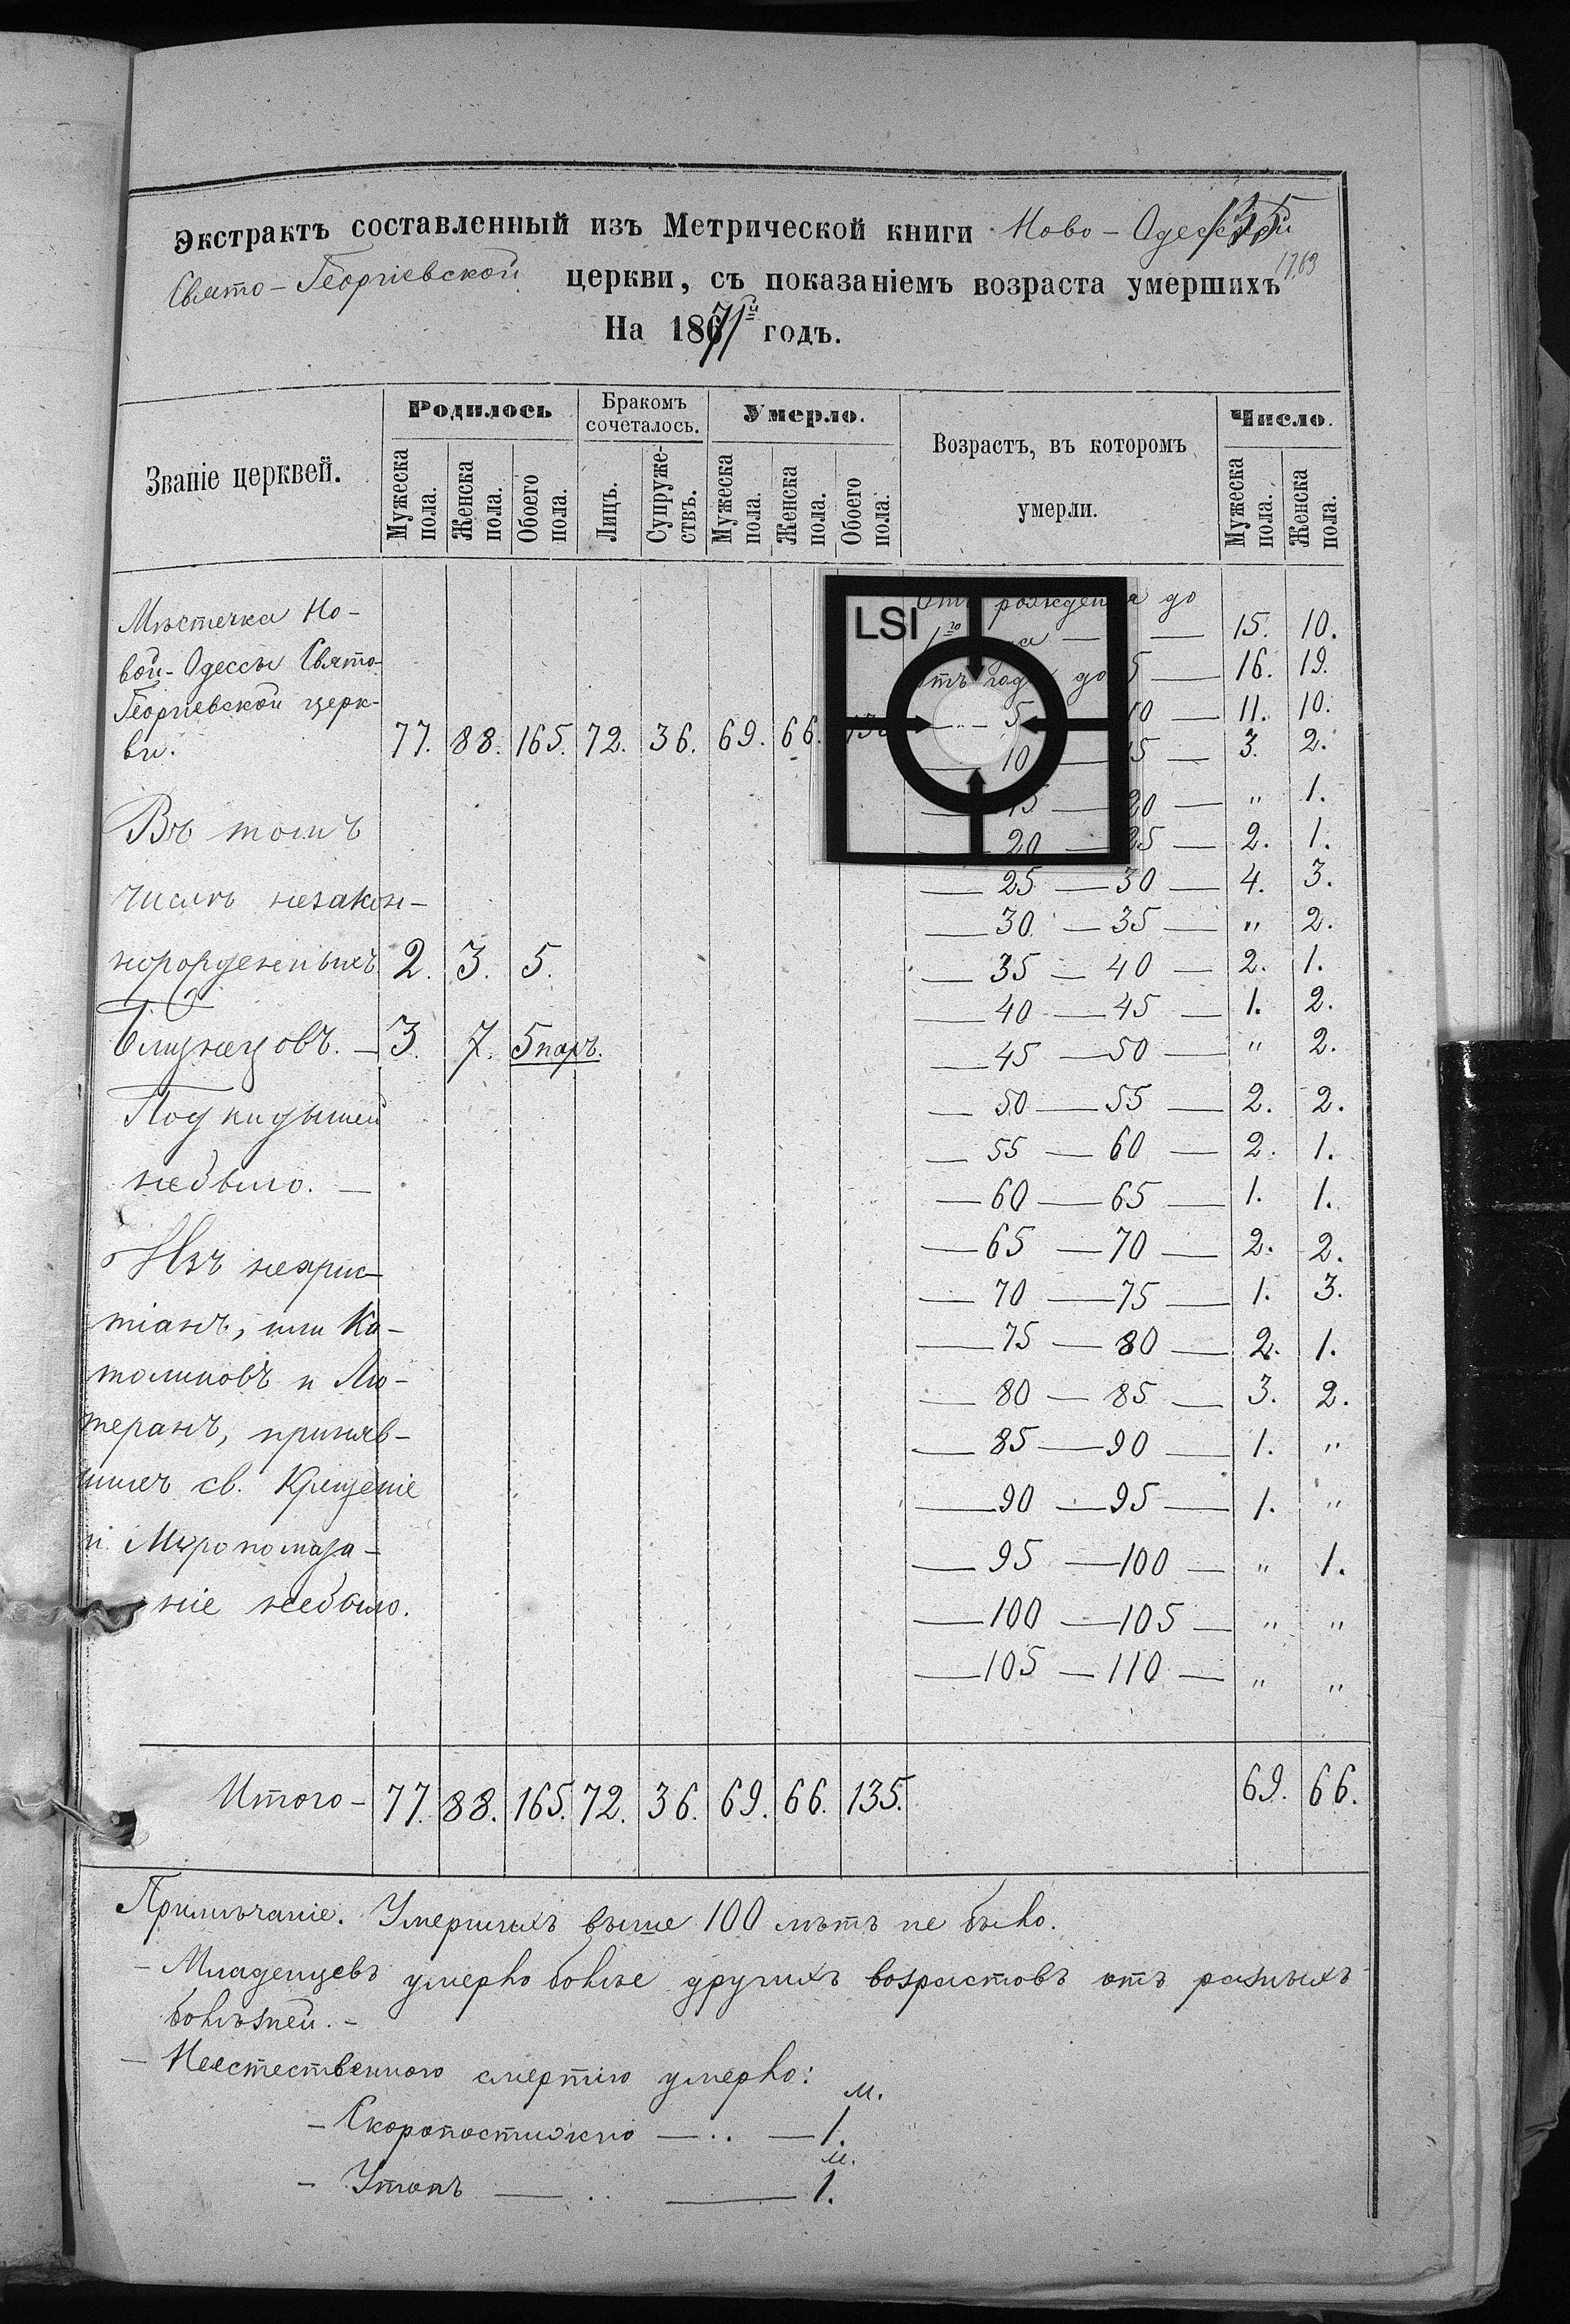 Экстрактъ составленный изъ Метрической книги Ново-Одесской
Свято-Георгіевской церкви, съ показаніемъ возраста умершихъ
1763
На 1871й годъ.
Званіе церквей.
Родилось
Бракомъ сочеталось.
Умерло.
Возрастъ, въ которомъ умерли.
Число.
Мужеска пола.
Женска пола.
Обоего пола.
Лицъ.
Супружествъ.
Мужеска пола.
Женска пола.
Обоего пола.
Мужеска пола.
Женска пола.
LSI
Мѣстечка Но-
вой-Одессы Свято-
Георгіевской церк-
ви. 77. 88. 165. 72. 36. 69. 66.
Въ томъ
числѣ незакон-
норожденныхъ 2. 3. 5.
Близнецовъ. — 3. 7. 5 паръ.
Подкидышей
небыло. —
Изъ нехрис-
тіанъ, или Ка-
толиковъ и Лю-
теранъ, приняв-
шихъ св. Крещеніе
и Мѵропомаза-
ніе небыло.
Отъ рожденія до
1го — 15. 10.
отъ года до 5 — 16. 19.
— 5 10 — 11. 10.
— 10 — 15 — 3. 2.
— 15 — 20 — " 1.
— 20 — 25 — 2. 1.
— 25 — 30 — 4. 3.
— 30 — 35 — " 2.
— 35 — 40 — 2. 1.
— 40 — 45 — 1. 2.
— 45 — 50 — " 2.
— 50 — 55 — 2. 2.
— 55 — 60 — 2. 1.
— 60 — 65 — 1. 1.
— 65 — 70 — 2. 2.
— 70 — 75 — 1. 3.
— 75 — 80 — 2. 1.
— 80 — 85 — 3. 2.
— 85 — 90 — 1. "
— 90 — 95 — 1. "
— 95 — 100 — " 1.
— 100 — 105 — " "
— 105 — 110 — " "
Итого — 77. 88. 165. 72. 36. 69. 66. 135. 69. 66.
Примѣчаніе. Умершихъ выше 100 лѣтъ не было.
— Младенцевъ умерло болѣе другихъ возрастовъ отъ разныхъ
болѣзней. —
— Неестественною смертію умерло:
м.
— Скоропостижно — .. — 1.
м.
— Утопъ — .. — 1.